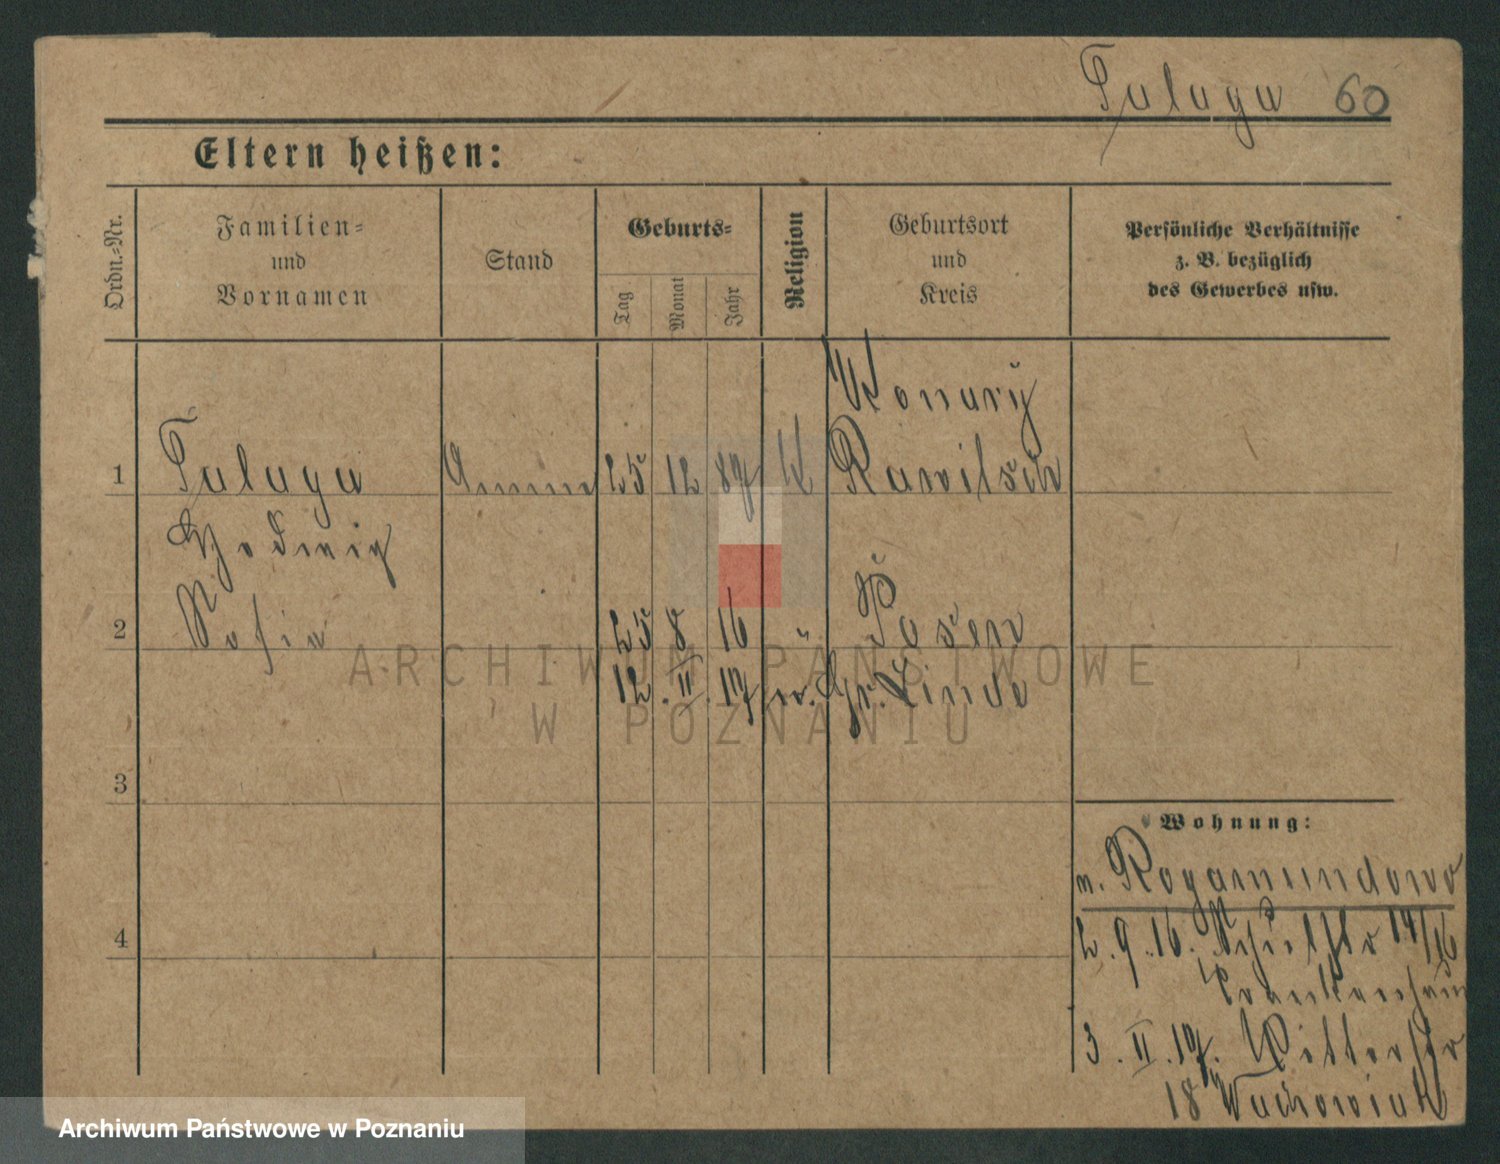 Talaga 60
Eltern heißen:
Ordn.-Nr.
Familien-
und
Vornamen
Stand
Geburts-
Tag
Monat
Jahr
Religion
Geburtsort
und
Kreis
Persönliche Verhältnisse
z. B. bezüglich
des Gewerbes usw.
Konary
1 Talaga Amme 25 12 87 K Rawitsch
Hedwig
2 Sofie 25 8 16 Posen
12. II. 17 Gr. Linde
3
Wohnung:
n. Rogamundowo
4
2. 9. 16. 14/16
Krankenhaus
3. II. 17. Ritterstr
18 Wachowiak
ARCHIWUM PAŃSTWOWE
W POZNANIU
Archiwum Państwowe w Poznaniu